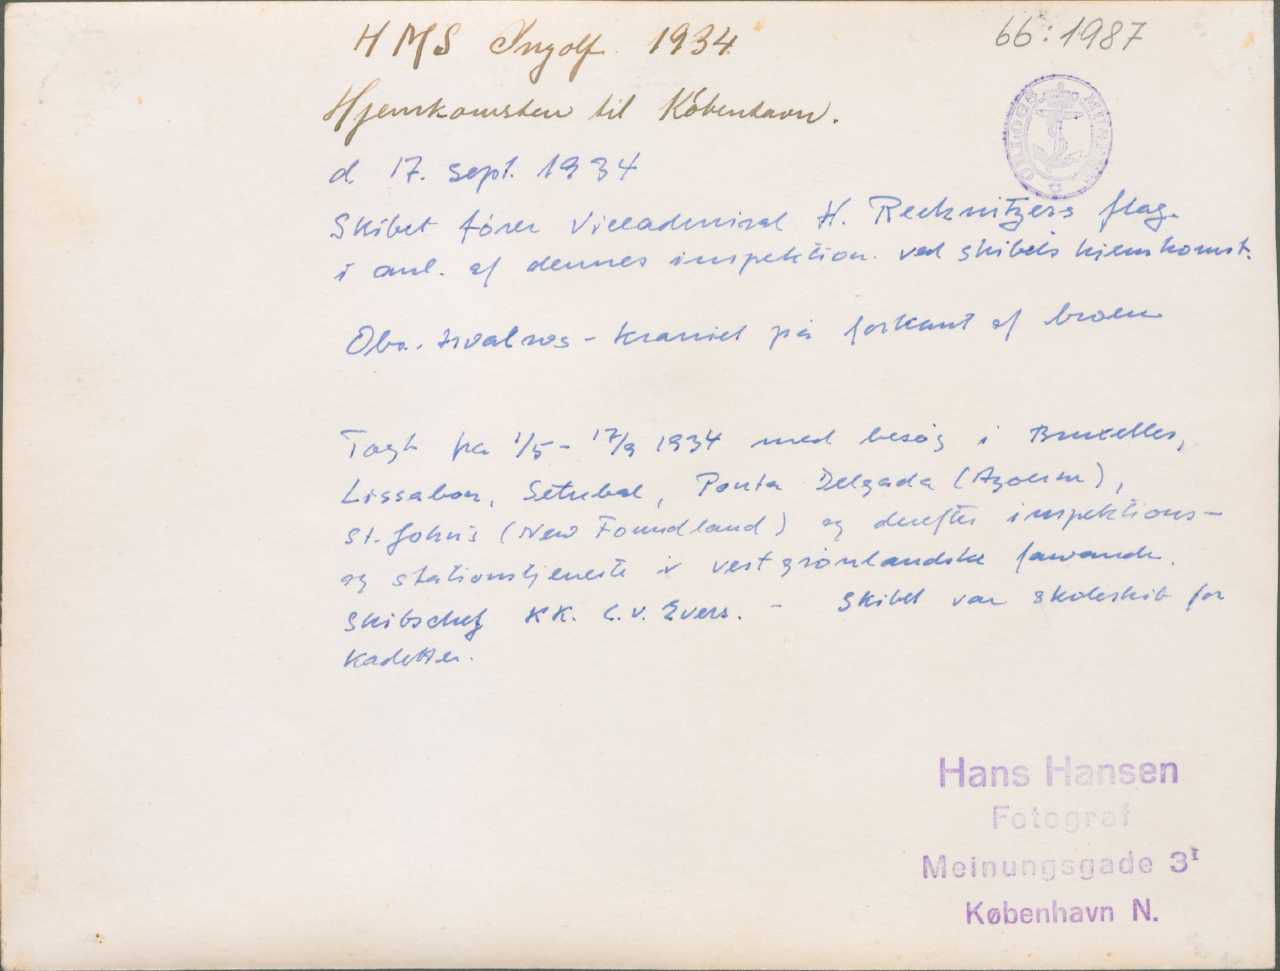 HMS Ingolf 1934
66:1987
Hjemkomsten til København.
ORLOGSMUSEET
d. 17. sept. 1934
Skibet fører Viceadmiral H. Recknitzers flag
i anl. af dennes inspektion ved skibets hjemkomst.
Obs. hvalros-kraniet på forkant af broen
Togt fra 1/5 - 17/9 1934 med besøg i Bruxelles,
Lissabon, Setubal, Ponta Delgada (Azorerne),
St. John's (New Foundland) og derefter inspektions-
og stationstjeneste i vestgrønlandske farvande.
Skibschef KK. C.V. Evers. - Skibet var skoleskib for
Kadetter.
Hans Hansen
Fotograf
Meinungsgade 3I
København N.